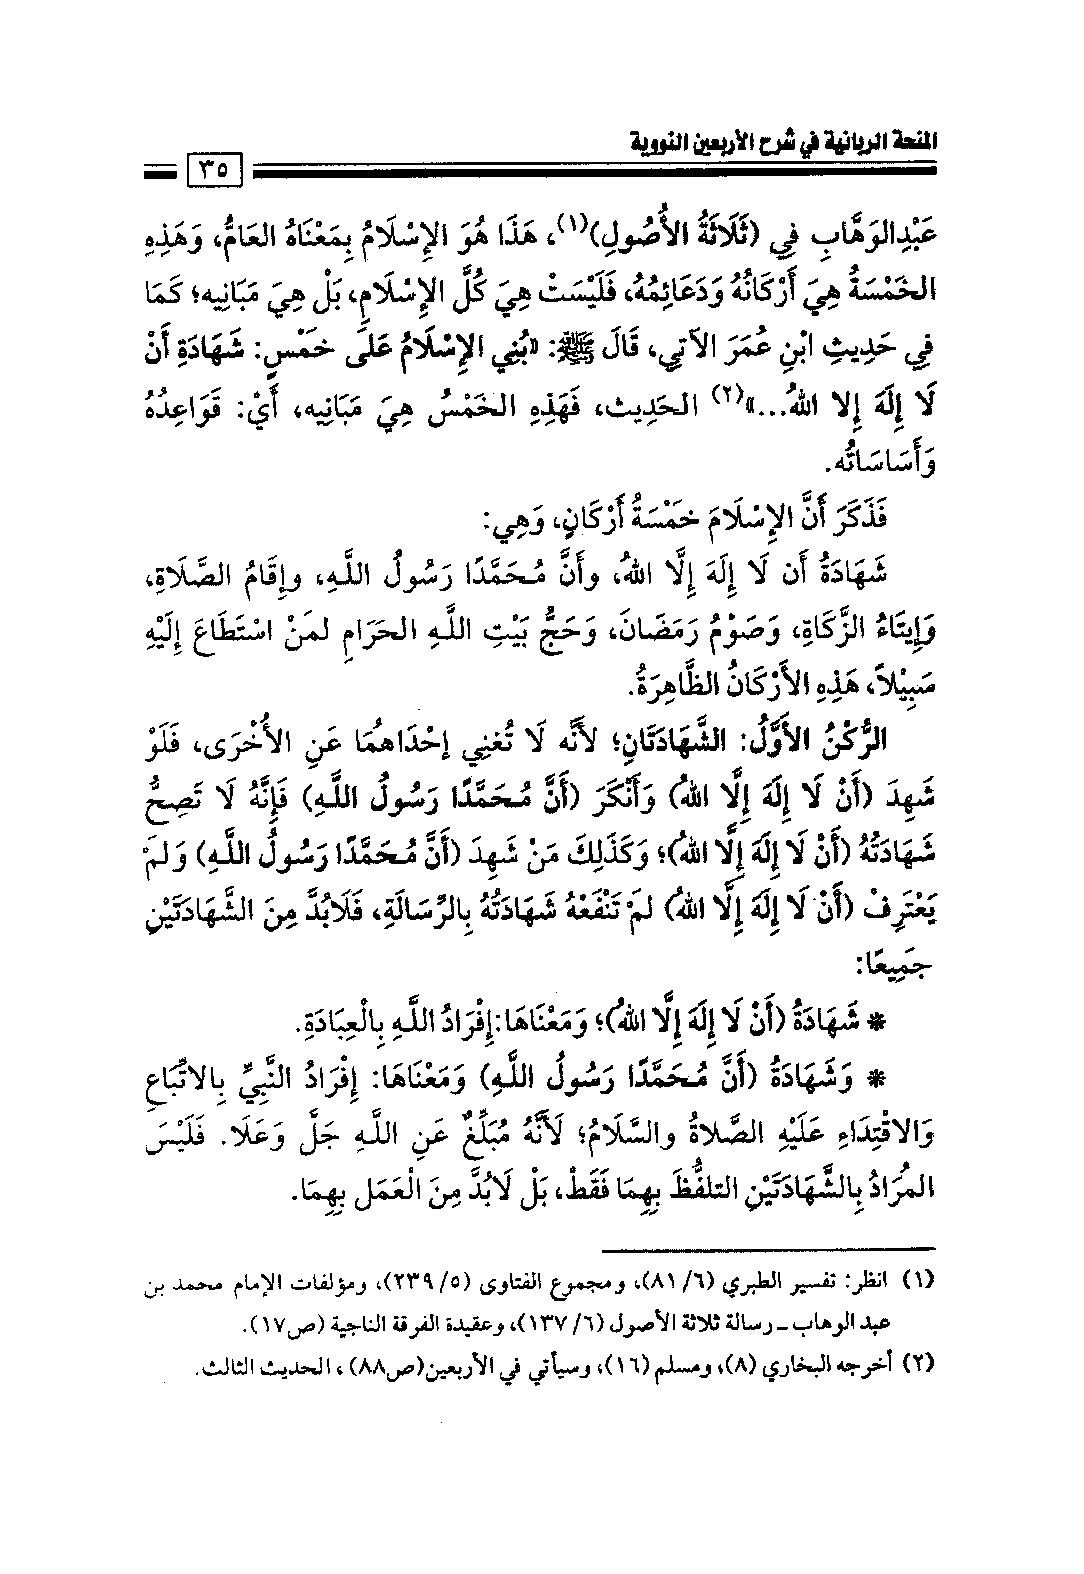 المنحة الربانية في شرح الأربعين النووية
٣٥
عَبْدِالوَهَّابِ فِي (ثَلَاثَةُ الأُصُولِ)(١)، هَذَا هُوَ الإِسْلَامُ بِمَعْنَاهُ العَامُّ، وَهَذِهِ
الخَمْسَةُ هِيَ أَرْكَانُهُ وَدَعَائِمُهُ، فَلَيْسَتْ هِيَ كُلَّ الإِسْلَامِ، بَلْ هِيَ مَبَانِيه؛ كَمَا
فِي حَدِيثِ ابْنِ عُمَرَ الآتِي، قَالَ ﷺ: «بُنِي الإِسْلَامُ عَلَى خَمْسٍ: شَهَادَةِ أَنْ
لَا إِلَهَ إِلا اللهُ...»(٢) الحَدِيث، فَهَذِهِ الخَمْسُ هِيَ مَبَانِيه، أَيْ: قَوَاعِدُهُ
وَأَسَاسَاتُه.
فَذَكَرَ أَنَّ الإِسْلَامَ خَمْسَةُ أَرْكَانٍ، وَهِي:
شَهَادَةُ أَن لَا إِلَهَ إِلَّا اللهُ، وأَنَّ مُحَمَّدًا رَسُولُ اللَّهِ، وإِقَامُ الصَّلَاةِ،
وَإِيتَاءُ الزَّكَاةِ، وَصَوْمُ رَمَضَانَ، وَحَجُّ بَيْتِ اللَّهِ الحَرَامِ لمَنْ اسْتَطَاعَ إِلَيْهِ
سَبِيْلاً، هَذِهِ الأَرْكَانُ الظَّاهِرَةُ.
الرُّكْنُ الأَوَّلُ: الشَّهَادَتَانِ؛ لأَنَّه لَا تُغنِي إحْدَاهُمَا عَنِ الأُخْرَى، فَلَوْ
شَهِدَ (أَنْ لَا إِلَهَ إِلَّا اللهُ) وَأَنْكَرَ (أَنَّ مُحَمَّدًا رَسُولُ اللَّهِ) فَإِنَّهُ لَا تَصِحُّ
شَهَادَتُهُ (أَنْ لَا إِلَهَ إِلَّا اللهُ)؛ وَكَذَلِكَ مَنْ شَهِدَ (أَنَّ مُحَمَّدًا رَسُولُ اللَّهِ) وَلمْ
يَعْتَرِفْ (أَنْ لَا إِلَهَ إِلَّا اللهُ) لمْ تَنْفَعْهُ شَهَادَتُهُ بِالرِّسَالَةِ، فَلَابُدَّ مِنَ الشَّهَادَتَيْنِ
جَمِيعًا:
* شَهَادَةُ (أَنْ لَا إِلَهَ إِلَّا اللهُ)؛ وَمَعْنَاهَا:إِفْرَادُ اللَّهِ بِالْعِبَادَةِ.
* وَشَهَادَةُ (أَنَّ مُحَمَّدًا رَسُولُ اللَّهِ) وَمَعْنَاهَا: إِفْرَادُ النَّبِيِّ بِالاتِّبَاعِ
وَالاقْتِدَاءِ عَلَيْهِ الصَّلاةُ والسَّلَامُ؛ لَأَنَّهُ مُبَلِّغٌ عَنِ اللَّهِ جَلَّ وَعَلَا. فَلَيْسَ
المُرَادُ بِالشَّهَادَتَيْنِ التلفُّظَ بِهِمَا فَقَطْ، بَلْ لَابُدَّ مِنَ الْعَمَل بِهِمَا.
(١) انظر: تفسير الطبري (٦/ ٨١)، ومجموع الفتاوى (٥/ ٢٣٩)، ومؤلفات الإمام محمد بن
عبد الوهاب - رسالة ثلاثة الأصول (٦/ ١٣٧)، وعقيدة الفرقة الناجية (ص١٧).
(٢) أخرجه البخاري (٨)، ومسلم (١٦)، وسيأتي في الأربعين(ص٨٨) ، الحديث الثالث.